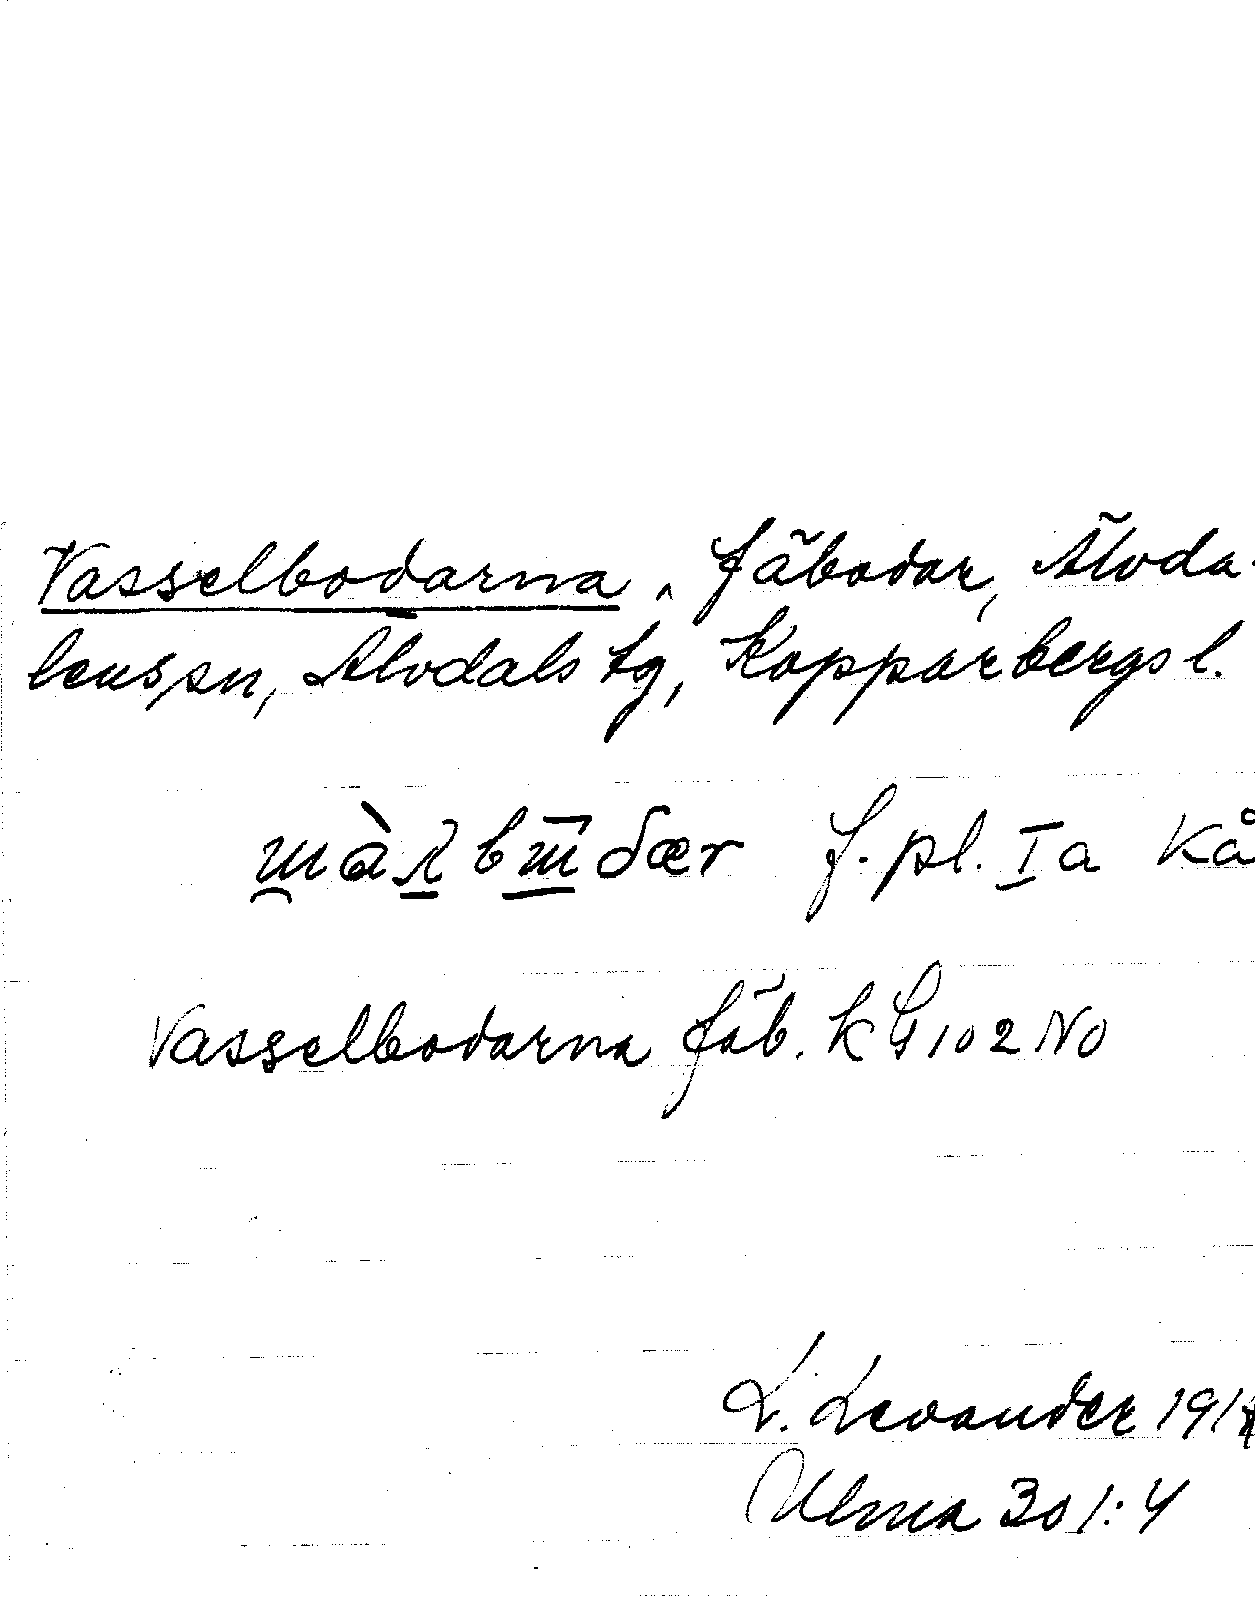 Vasselbodarna, fäbodar, Älvda-
lens sn, Älvdals tg, Kopparbergs l.
f. pl. Ia Kå
Vasselbodarna fäb. K G 102 NO
L. Levander 191
Ulma 301:4